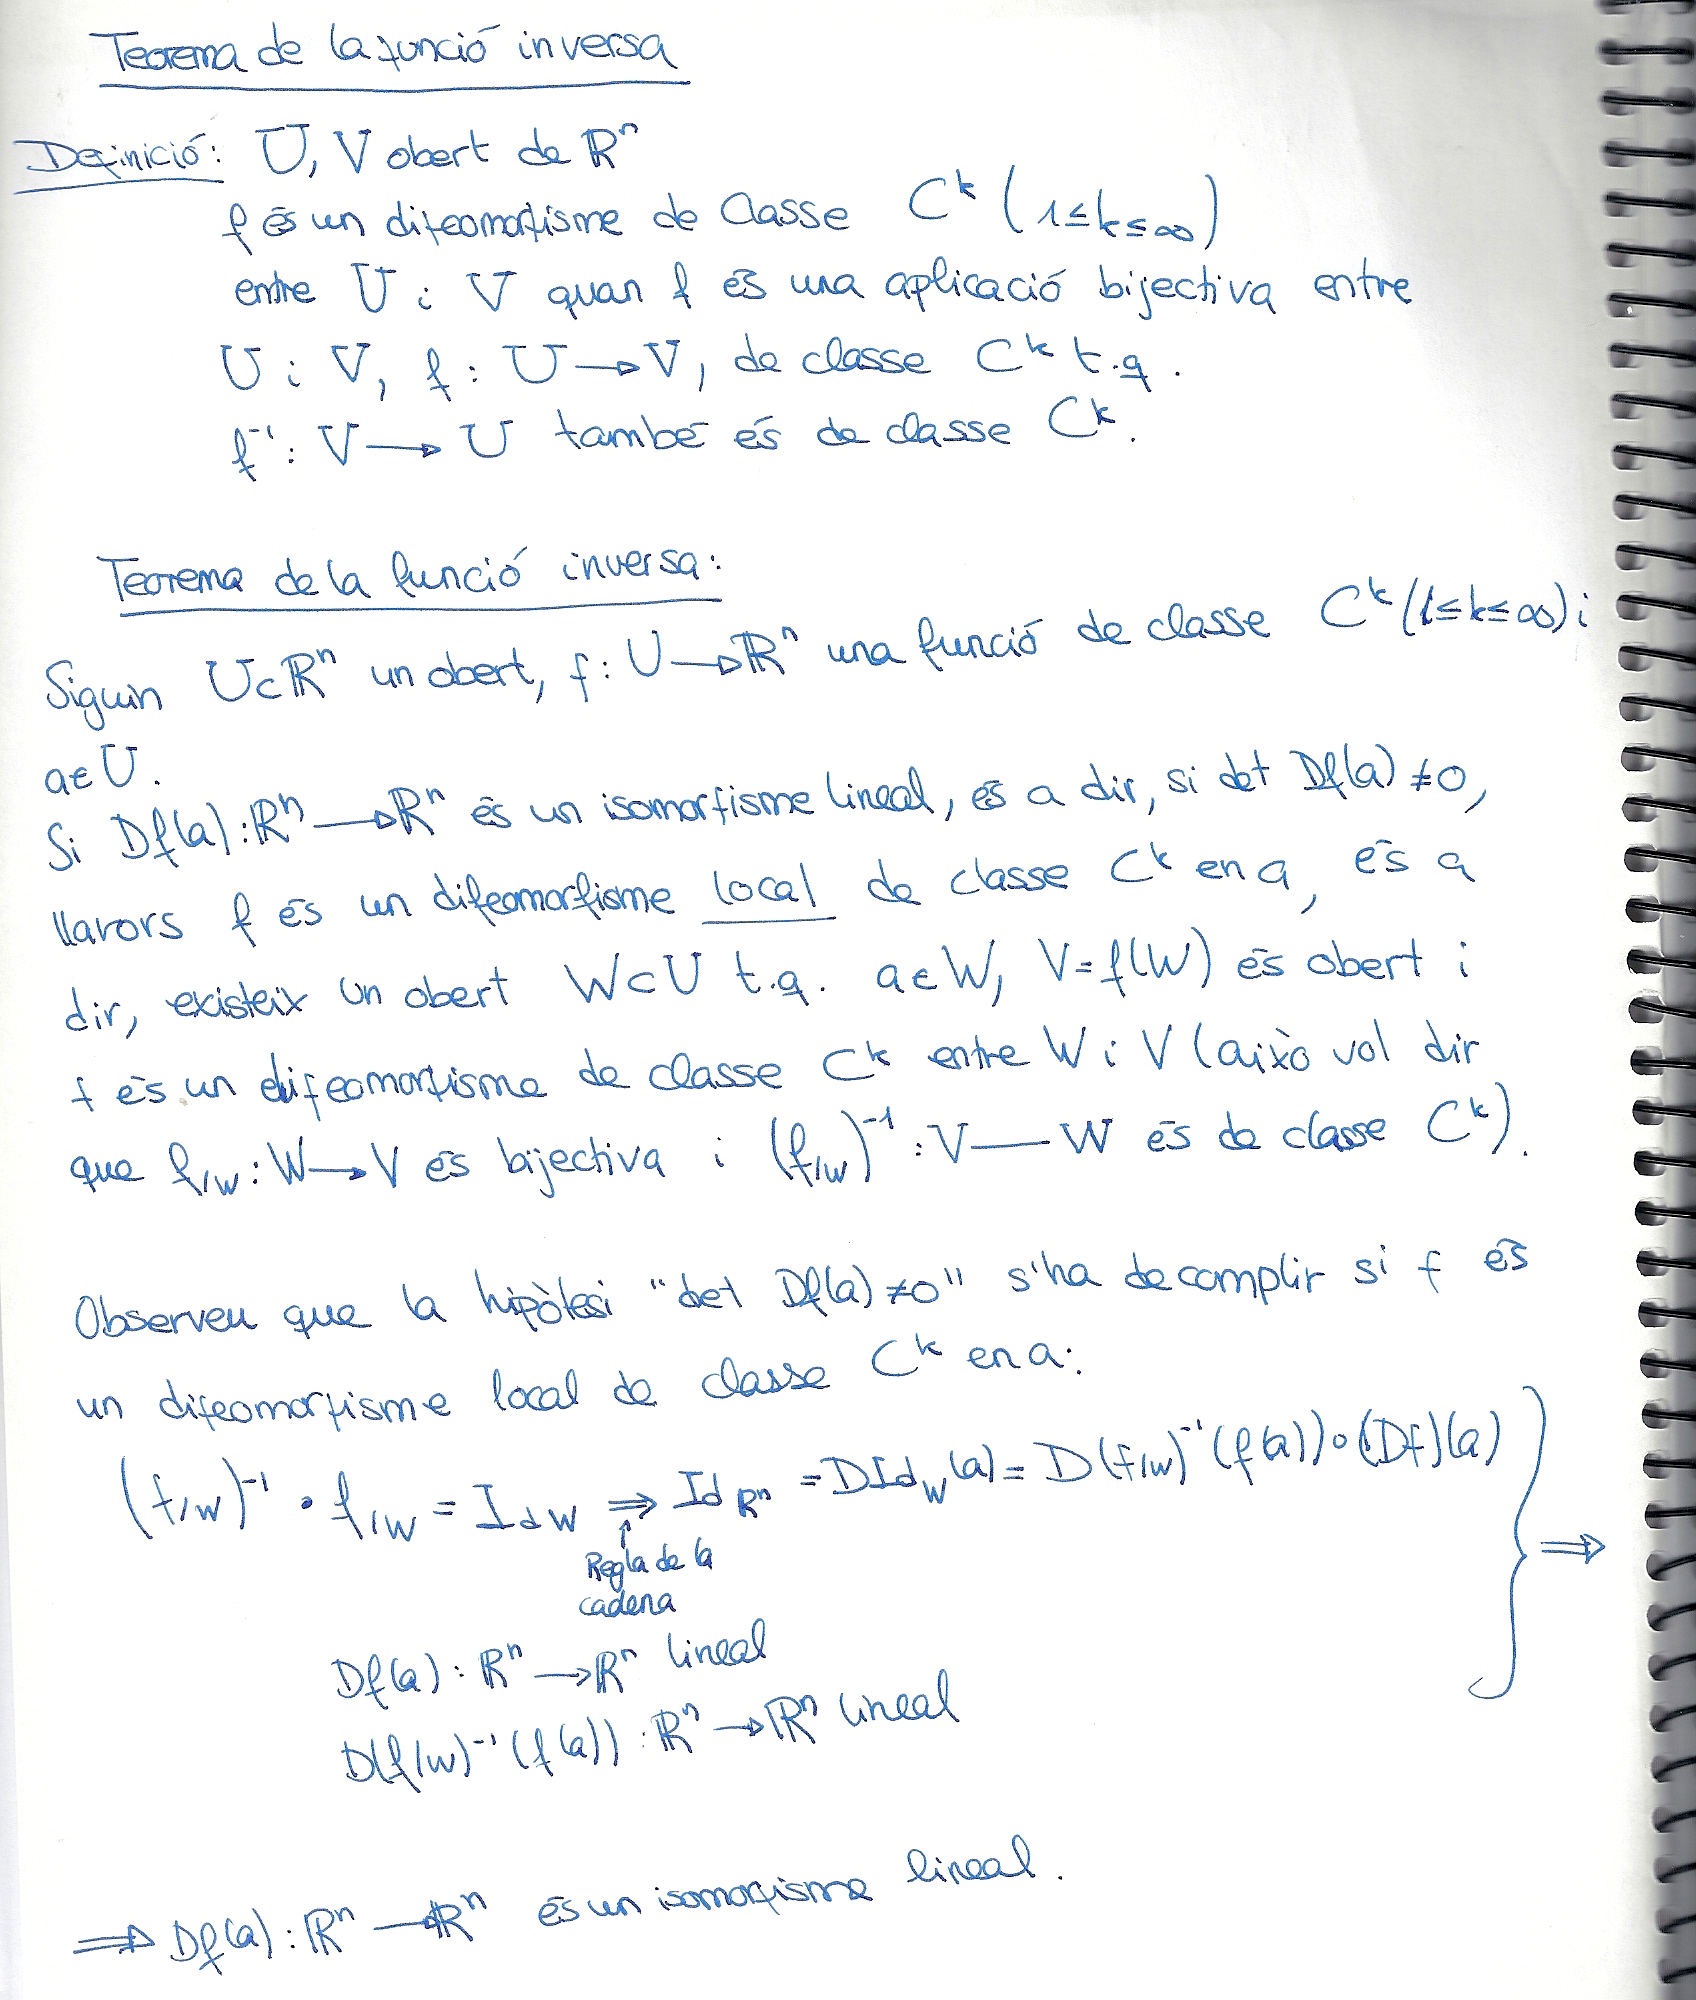 Teorema de la funció inversa
Definició: U, V obert de ℝⁿ
f és un difeomorfisme de classe Cᵏ (1≤k≤∞)
entre U i V quan f és una aplicació bijectiva entre
U i V, f: U→V, de classe Cᵏ t.q.
f⁻¹: V→U també és de classe Cᵏ.
Teorema de la funció inversa:
Siguin U⊂ℝⁿ un obert, f: U→ℝⁿ una funció de classe Cᵏ(1≤k≤∞) i
a∈U.
Si Df(a): ℝⁿ→ℝⁿ és un isomorfisme lineal, és a dir, si det Df(a)≠0,
llavors f és un difeomorfisme local de classe Cᵏ en a, és a
dir, existeix un obert W⊂U t.q. a∈W, V=f(W) és obert i
f és un difeomorfisme de classe Cᵏ entre W i V (això vol dir
que f|W: W→V és bijectiva i (f|W)⁻¹: V—W és de classe Cᵏ).
Observeu que la hipòtesi "det Df(a)≠0" s'ha de complir si f és
un difeomorfisme local de classe Cᵏ en a:
(f|W)⁻¹ • f|W = Id W ⇒ Id ℝⁿ = DId W (a) = D(f|W)⁻¹(f(a))∘(Df)(a) } ⇒
↑
Regla de la
cadena
Df(a): ℝⁿ→ℝⁿ lineal
D(f|W)⁻¹(f(a)): ℝⁿ→ℝⁿ lineal
⇒ Df(a): ℝⁿ→ℝⁿ és un isomorfisme lineal.